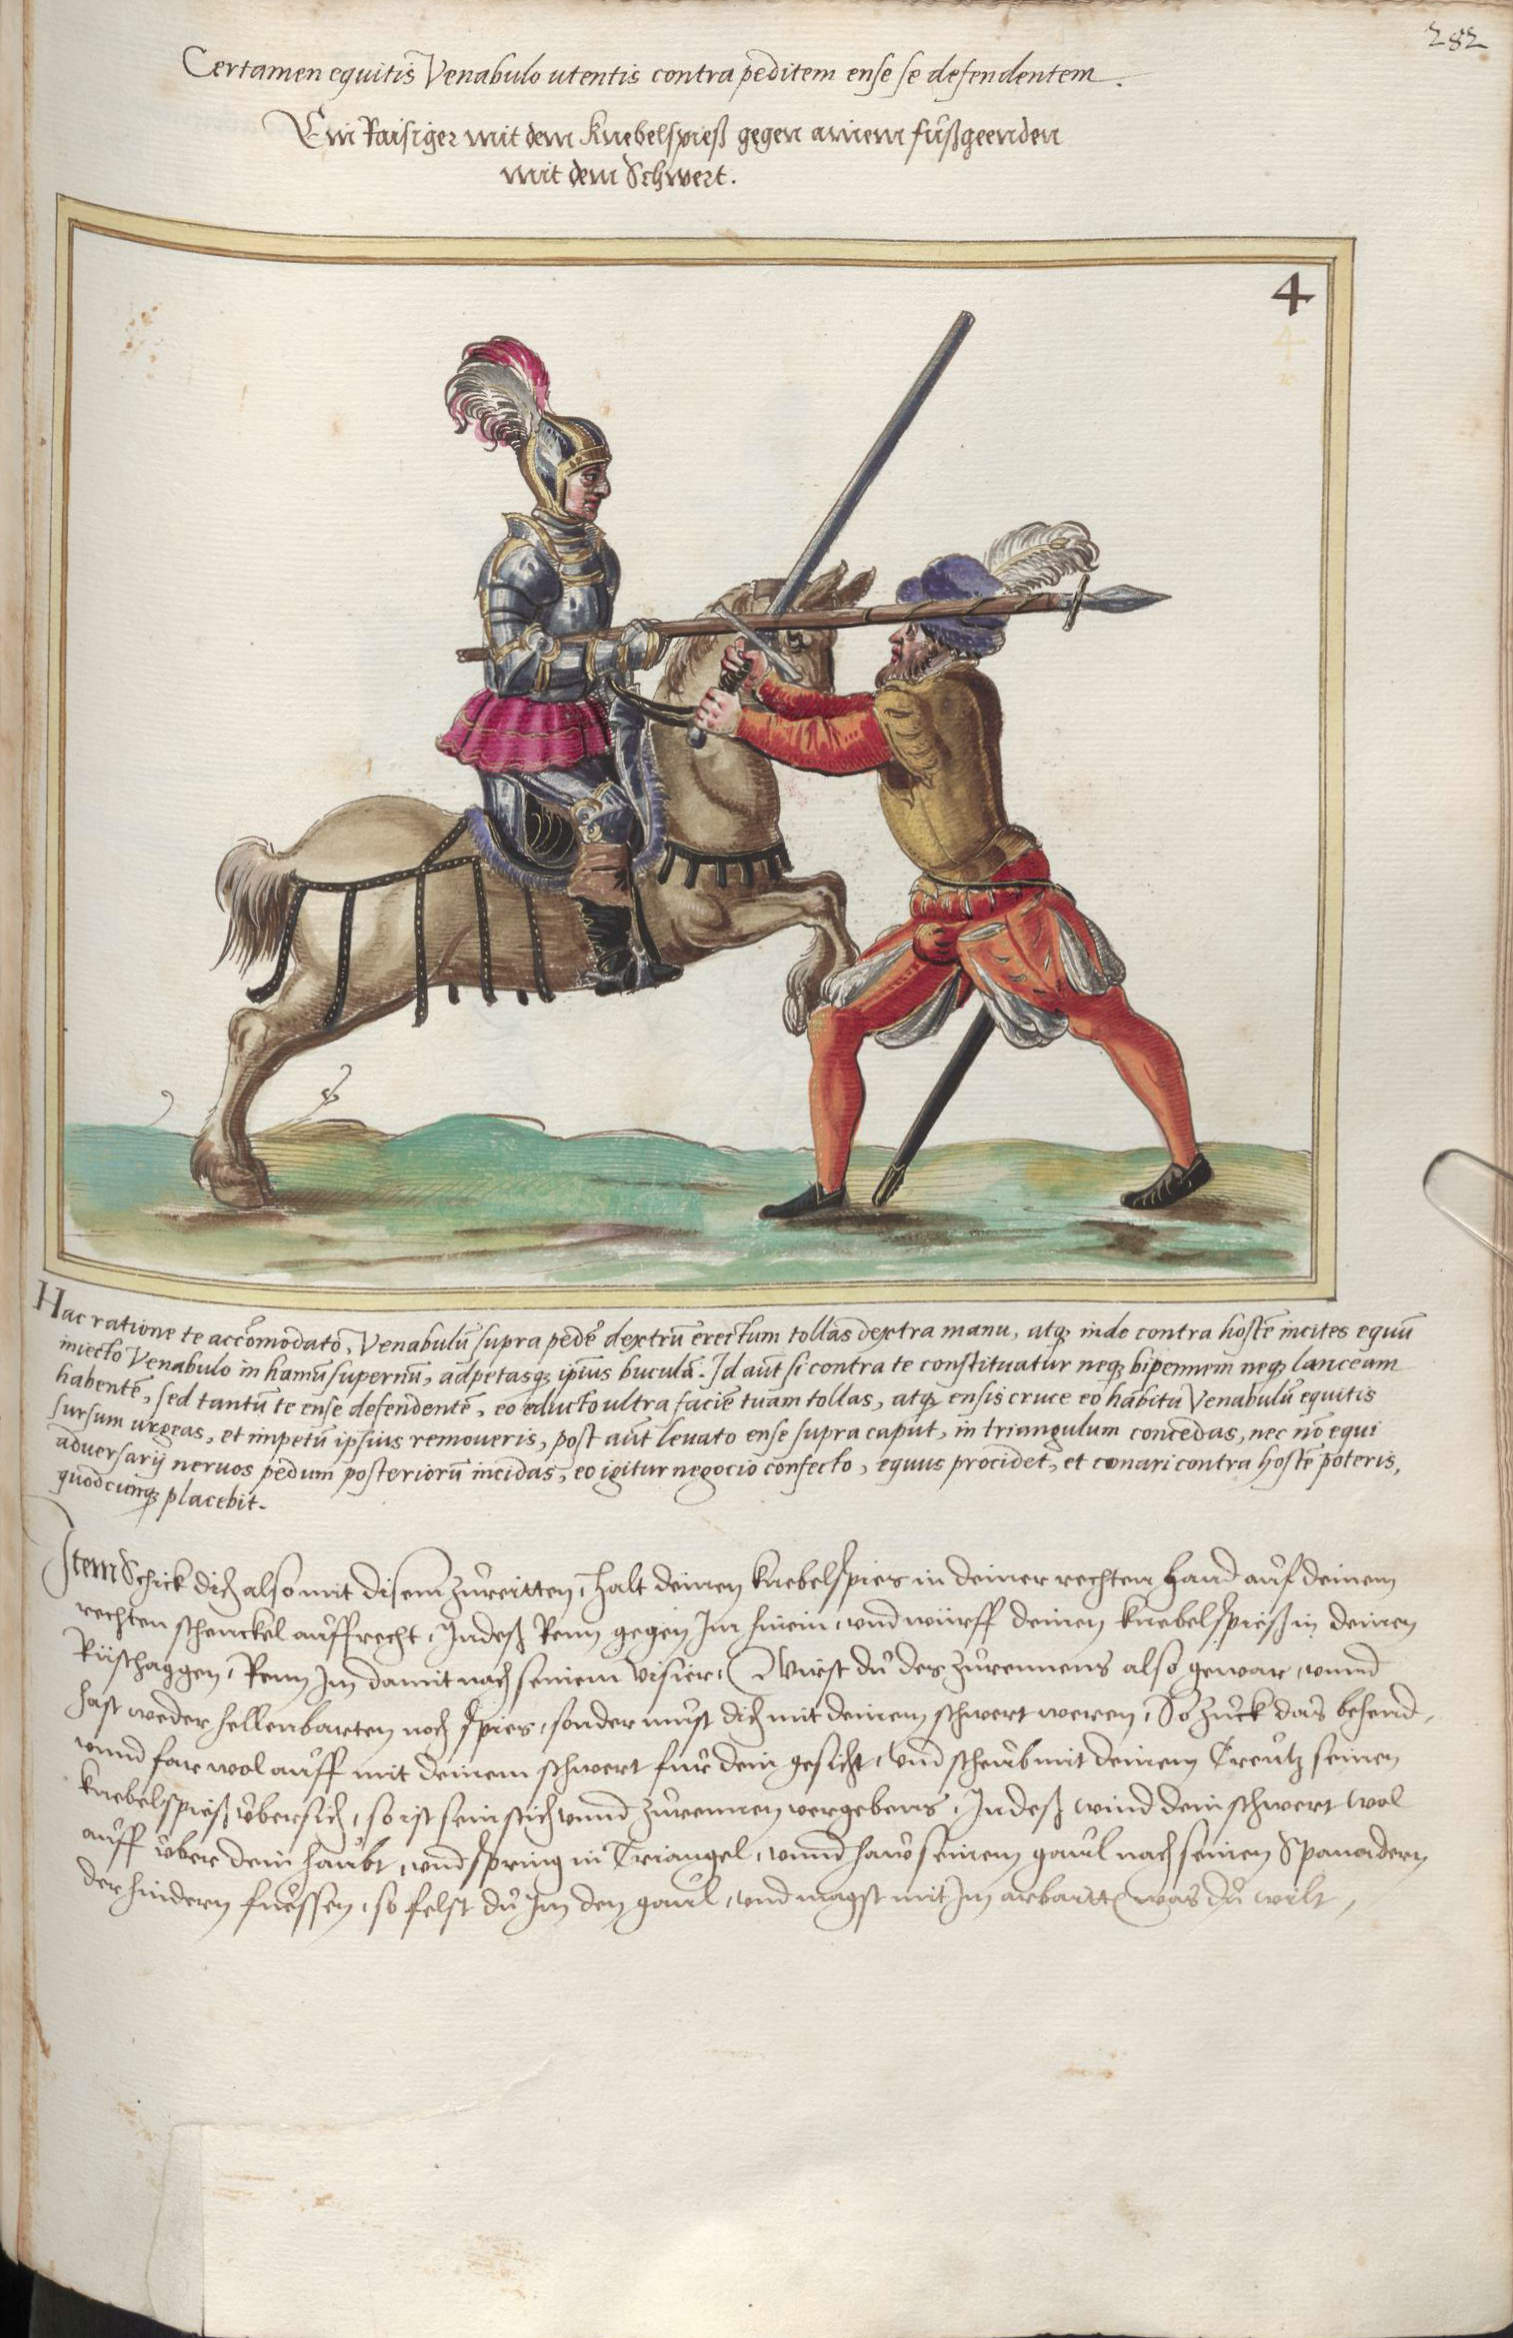 282
Certamen equitis Venabulo utentis contra peditem ense se defendentem.
Ein Raisiger mit dem Knebelspieß gegen ainem fůßgeenden
mit dem Schwert.
4
Hac ratione te accōmodato, Venabulū supra pedē dextrū erectum tollas dextra manu, atq; inde contra hostē incites equū
iniecto Venabulo in hamū supernū, adpetasq; ipsius buculā. Id aūt si contra te constituatur neq; bipennem neq; lanceam
habentē, sed tantū te ense defendentē, eo educto ultra faciē tuam tollas, atq; ensis cruce eo habitu Venabulū equitis
sursum urgeas, et impetū ipsius removeris, post aūt levato ense supra caput, in triangulum concedas, nec nō equi
adversarij nervos pedum posteriorū incidas, eo igitur negocio confecto, equus procidet, et conari contra hostē poteris,
quodcunq; placebit.
Item Schick dich also mit disem zůreitten, halt deinen knebelspies in deiner rechten hand auf deinem
rechten schenckel auffrecht, Indeß Renn gegen Im hinein, und würff deinen knebelspieß in deinen
Rüsthaggen, Renn Im damit nach seinem visier, Wirst dů des zůrennens also gewar, unnd
hast weder hellenbarten noch spies, sonder must dich mit deinem schwert weren, So zuck das behend,
unnd far wol auff mit deinem schwert für dein gesicht, und scheub mit deinem Creutz seinen
knebelspieß übersich, so ist sein stich unnd zůrennen vergebens, Indeß wind dein schwert wol
auff über dein haubt, und spring in Triangel, unnd haw seinem gaul nach seinen Spanadern
der hindern fuessen, so felst dů Im den gaul, und magst mit Im arbaitt was dů wilt,